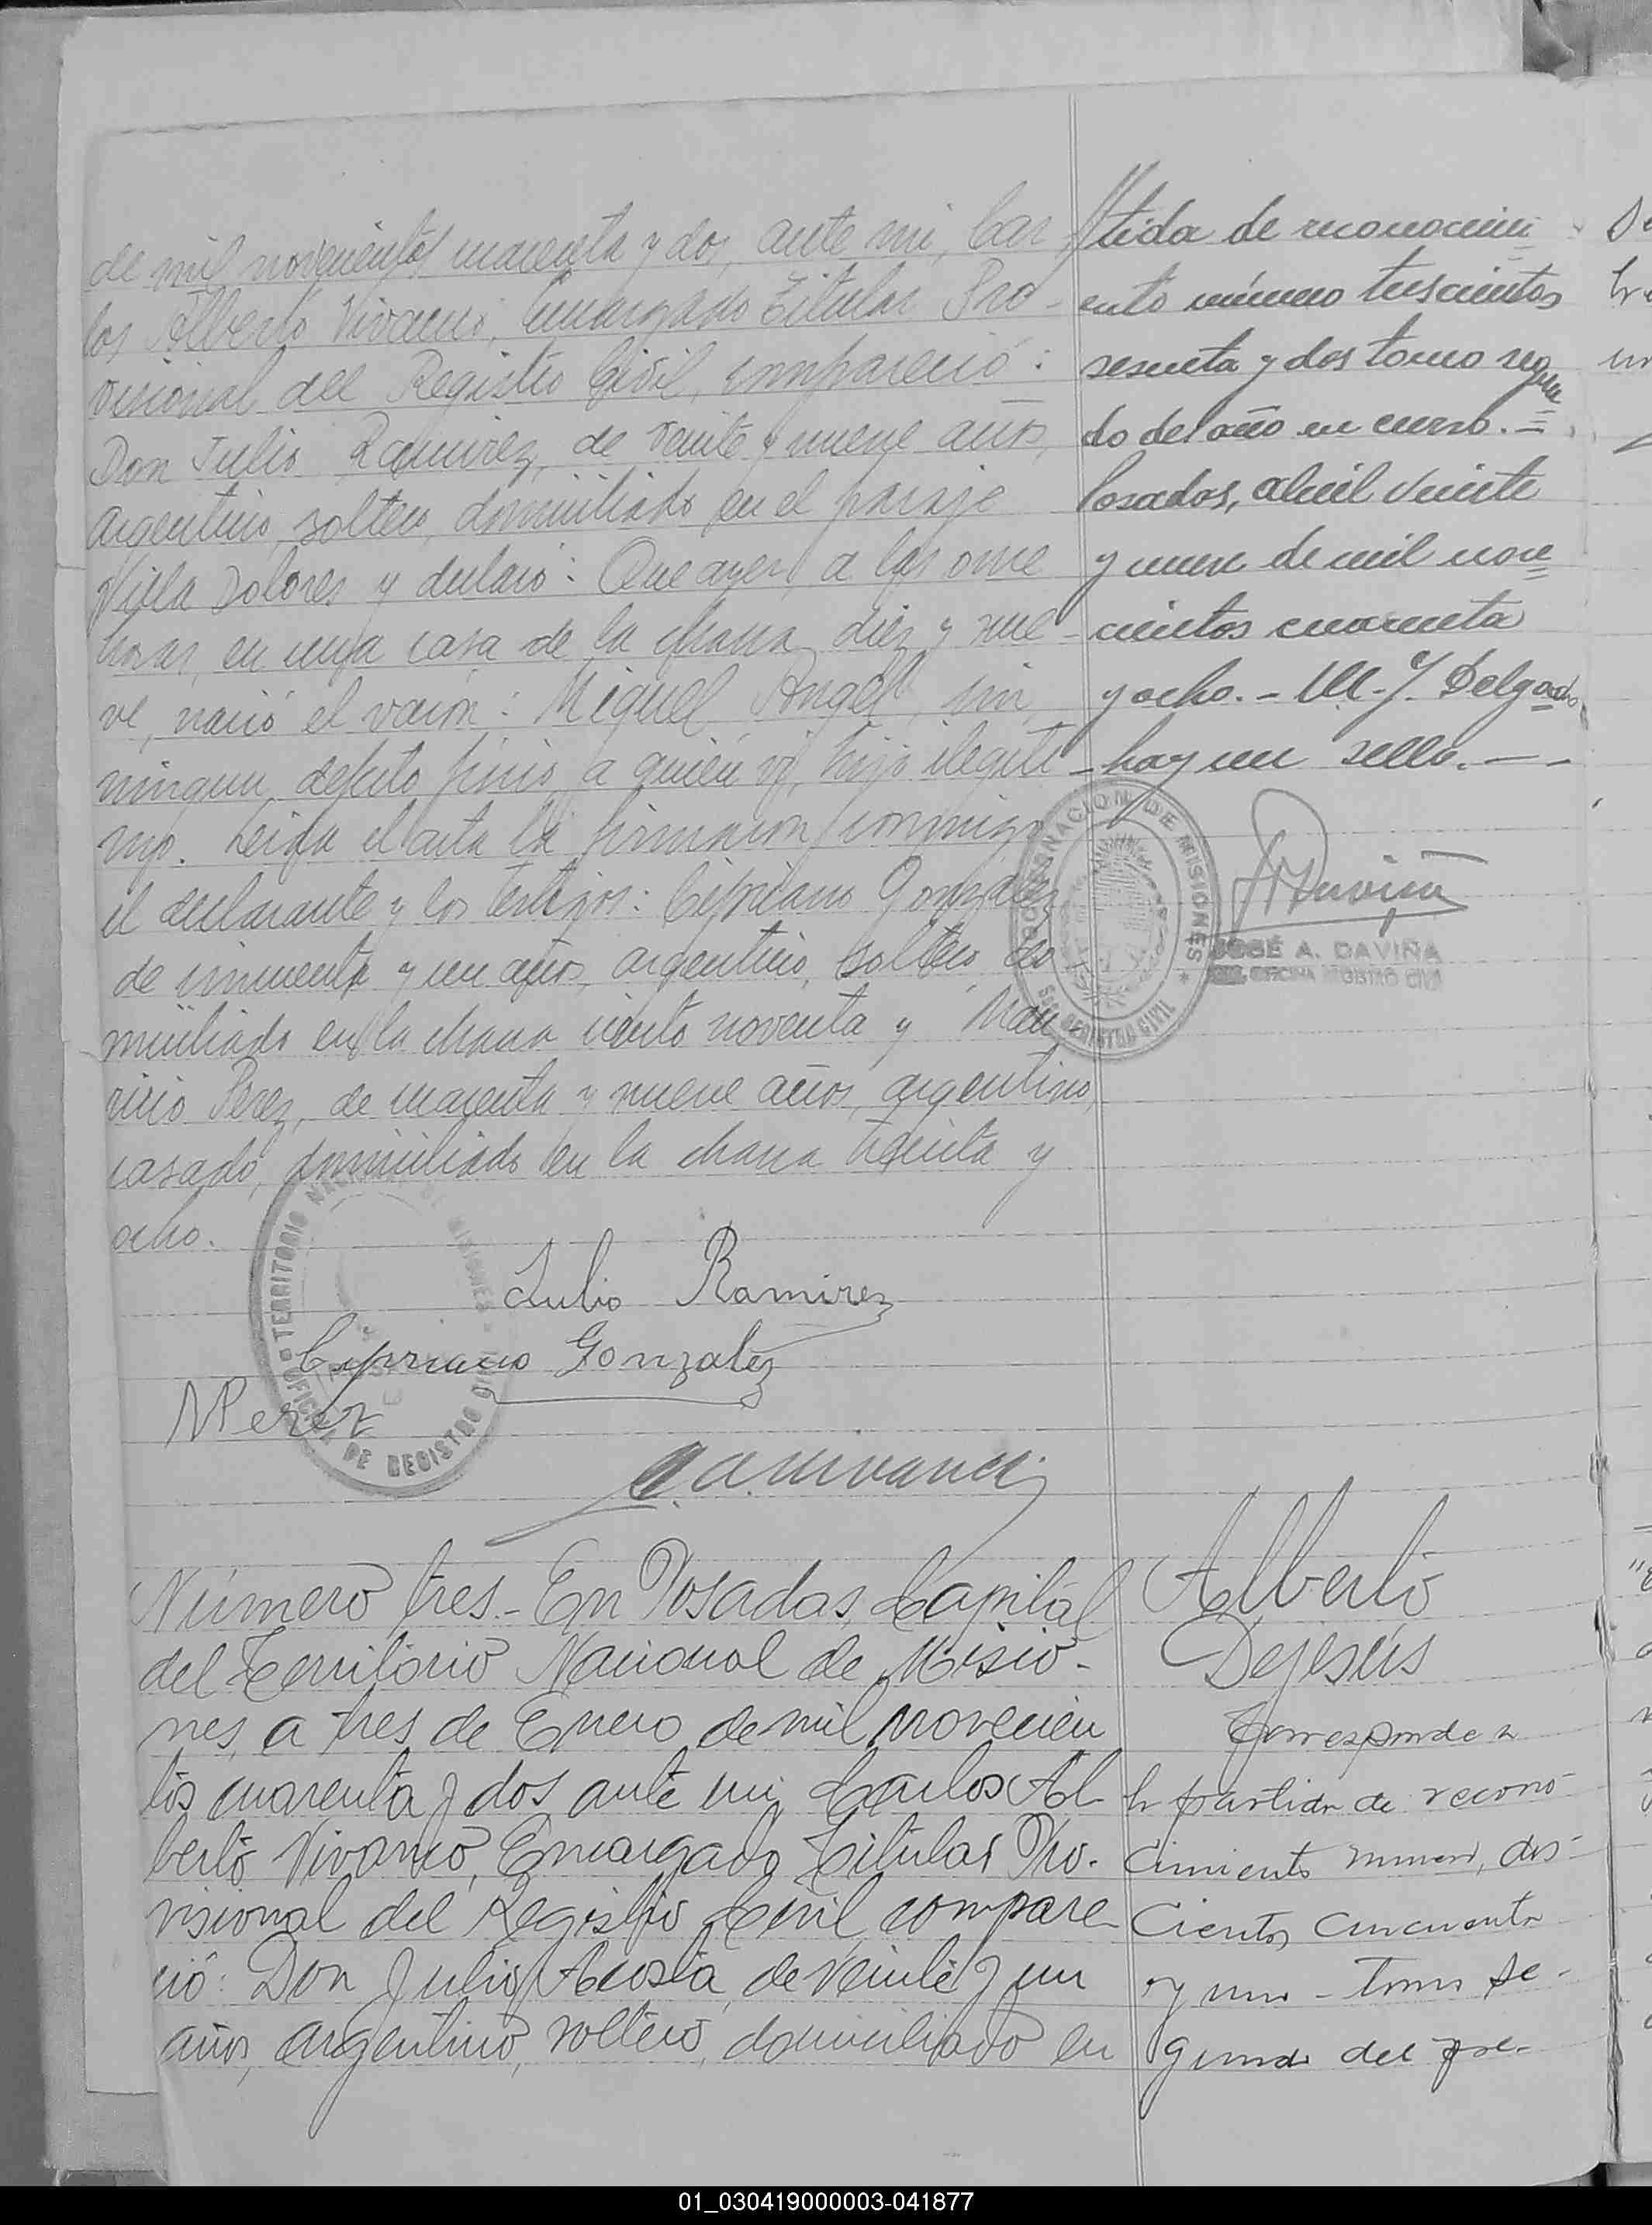 de mil novecientos cuarenta y dos, ante mi, Car
los Alberto Vivanco, Encargado Titular Pro-
visional del Registro Civil, compareció:
Don Julio Ramirez, de veinte y nueve años,
argentino, soltero, domiciliado en el paraje
Villa Dolores y declaró: Que ayer, a las once
horas, en una casa de la chacra diez y nue-
ve, nació el varón: Miguel Angel, sin
ningun defecto físico, a quién ví, hijo ilegíti-
mo. Leida el acta la firmaron conmigo
el declarante y los testigos: Cipriano Gonzalez
de cincuenta y un años, argentino, soltero, do-
miciliado en la chacra ciento noventa y Mau-
ricio Perez, de cuarenta y nueve años, argentino,
casado, domiciliado en la chacra treinta y
ocho.
Julio Ramirez
Cipriano Gonzalez
MPerez
C.A.Vivanco
TERRITORIO MISIONES
OFICINA DE REGISTRO CIVIL
tida de reconocimi
ento número trescientos
sesenta y dos tomo segun
do del año en curso.=
Posadas, abril veinte
y nueve de mil nove=
cientos cuarenta
y ocho. - M. J. Delgado,
hay un sello. - -
GOBERNACION DE MISIONES
REGISTRO CIVIL
JOSÉ A. DAVIÑA
OFICINA REGISTRO CIVIL
Número tres.- En Posadas, Capital
del Territorio Nacional de Misio-
nes, a tres de Enero de mil novecien
tos cuarenta y dos ante mi Carlos Al-
berto Vivanco, Encargado Titular Pro-
visional del Registro Civil, compare-
ció: Don Julio Acosta, de veinte y un
años, argentino, soltero, domiciliado en
Alberto
Dejesús
Corresponde a
la partida de recono-
cimiento numero, dos-
cientos cincuenta
y uno - tomo se-
gundo del pre-
01_030419000003-041877